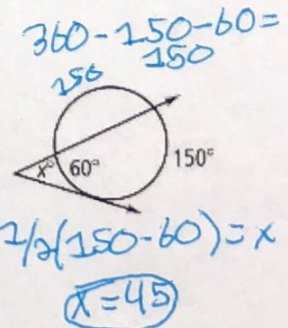 360-150-60=
150
150
x° 60° 150°
1/2(150-60)=x
x=45